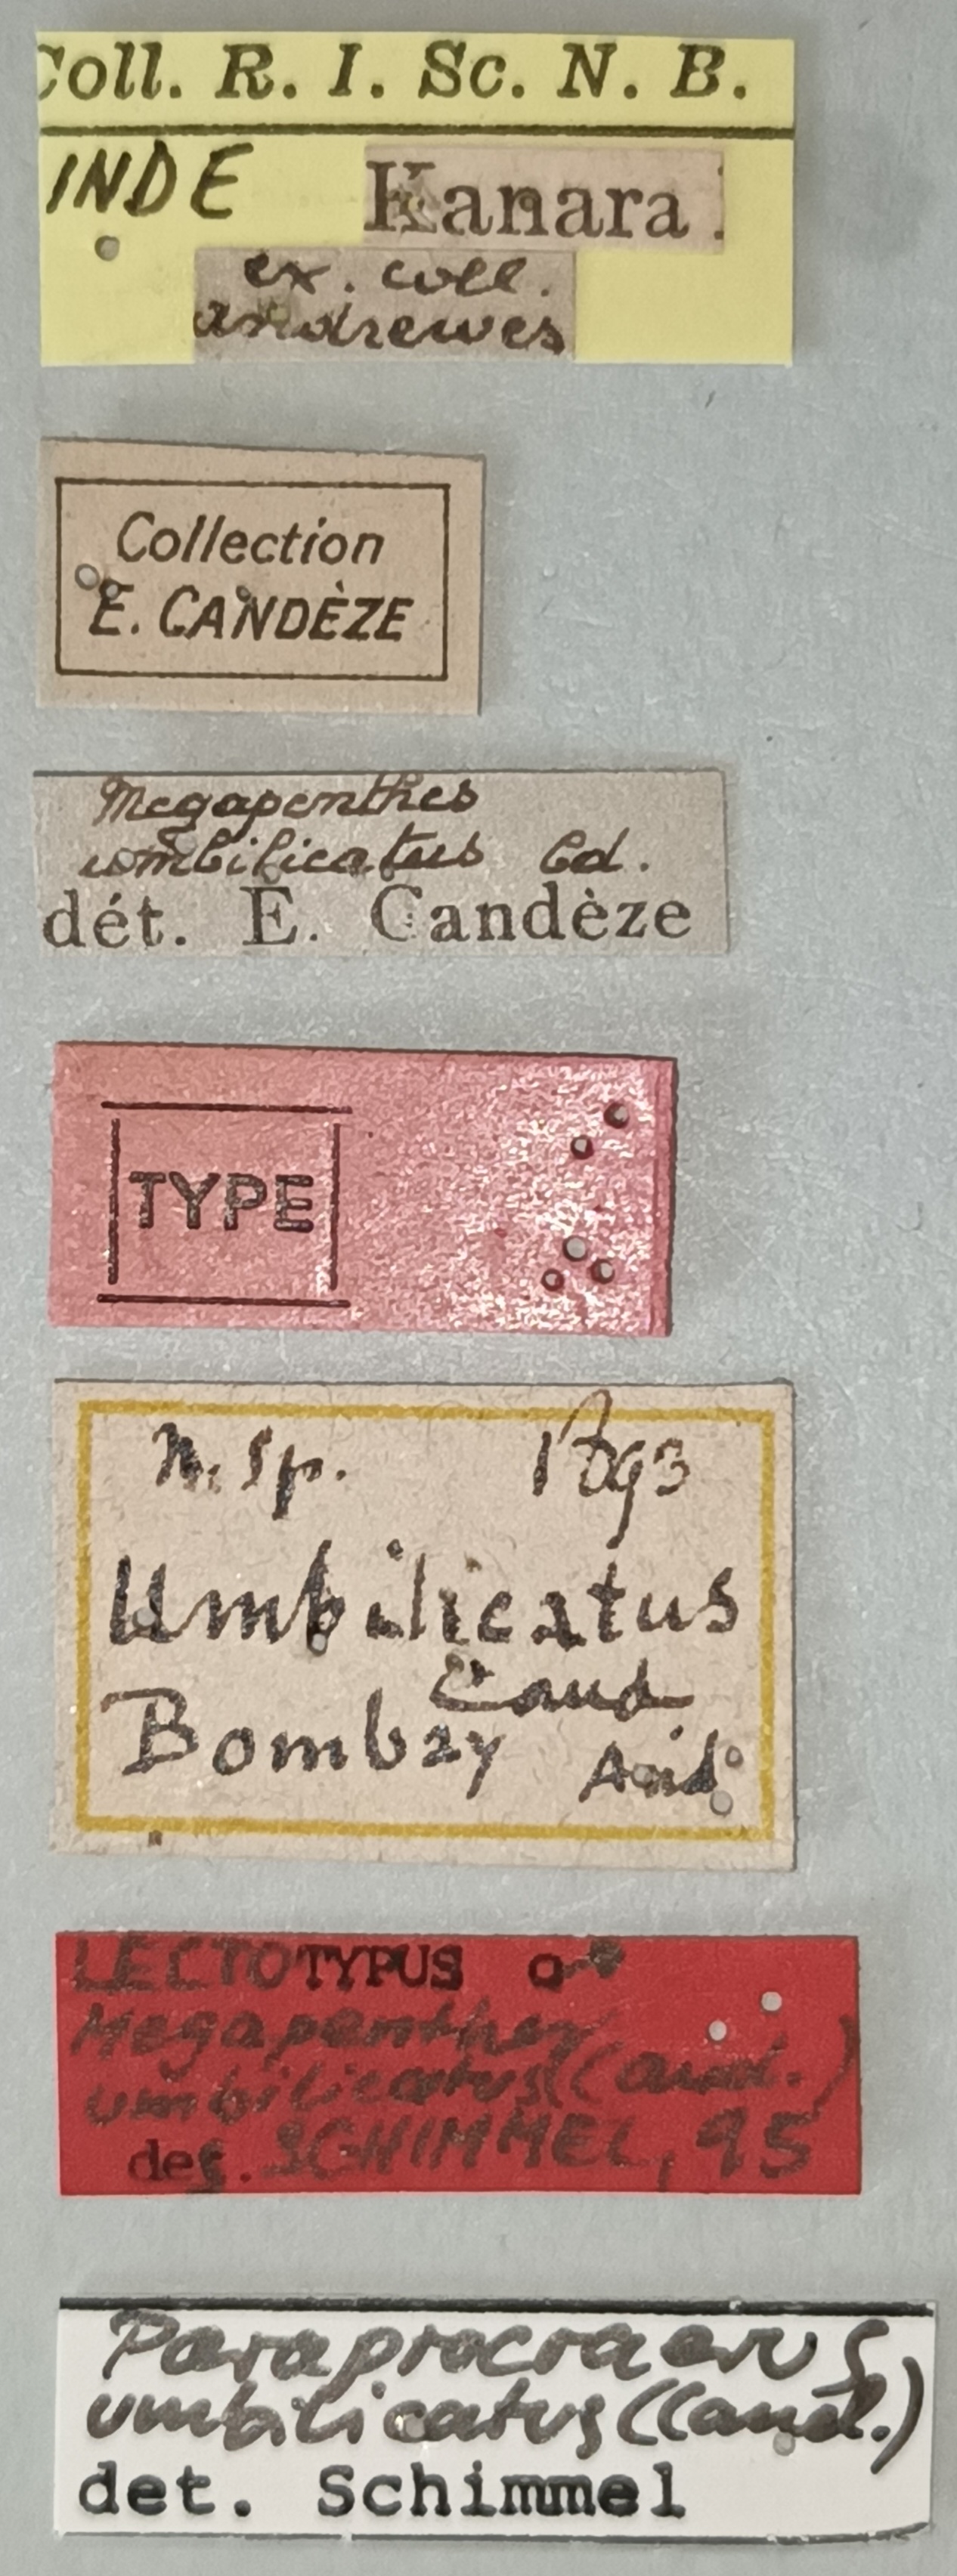 Coll. R. I. Sc. N. B.
INDE Kanara.
ex. coll.
andrewes
Collection
E. CANDÈZE
Megapenthes
umbilicatus Cd.
dét. E. Candèze
TYPE
n. sp. 1893
Umbilicatus
Cand
Bombay And
LECTOTYPUS ♂
Megapenthes
umbilicatus (Cand.)
des. SCHIMMEL, 95
Paraprocraerus
umbilicatus (Cand.)
det. Schimmel